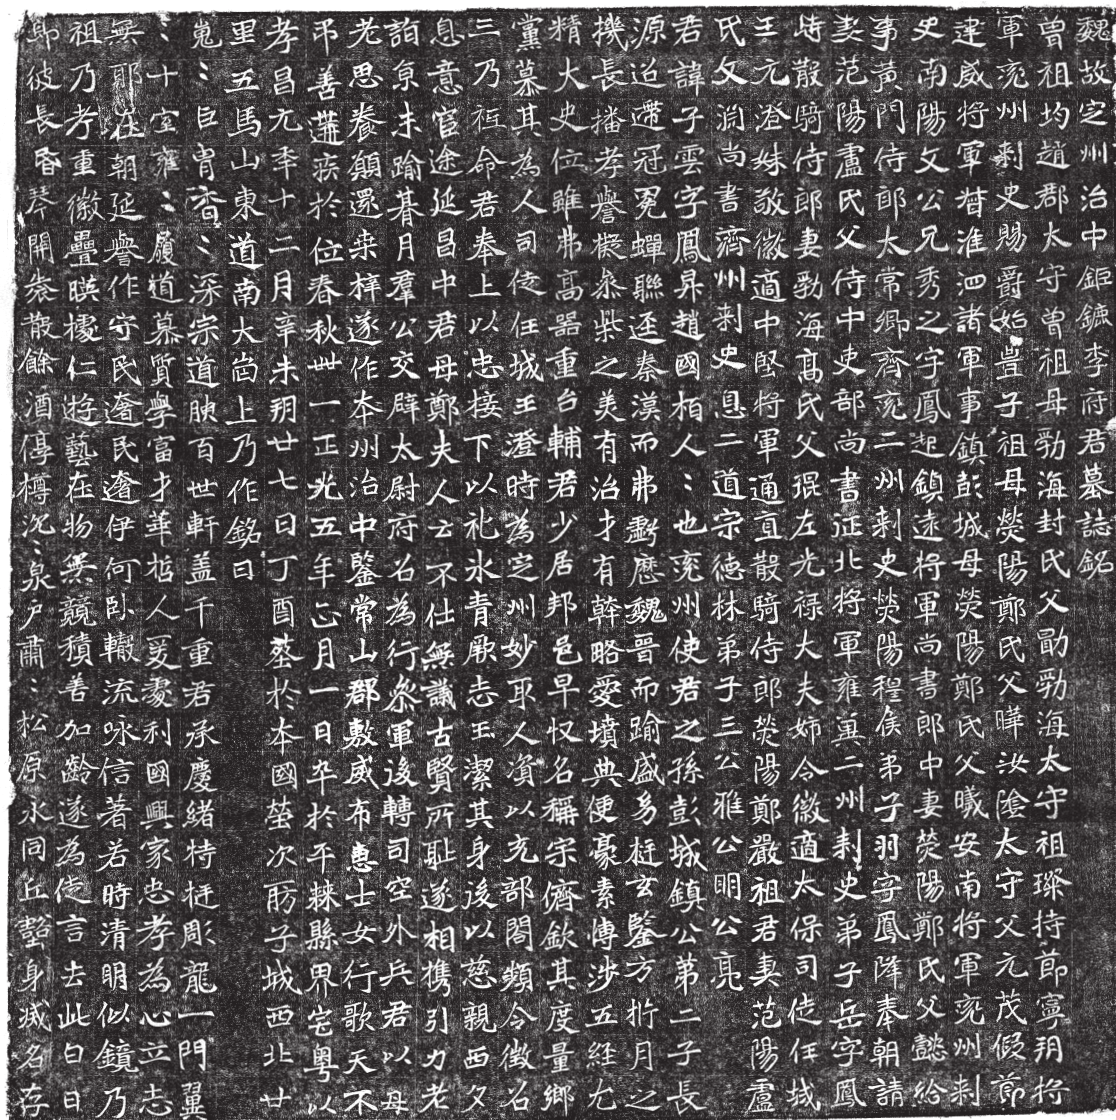 魏故定州治中鉅鏕李府君墓誌銘
曾祖均趙郡太守曾祖母勃海封氏父勖勃海太守祖璨持節寧朔將
軍兖州刺史賜爵始豊子祖母滎陽鄭氏父曄汝陰太守父元茂假節
建威將軍督淮泗諸軍事鎮彭城母滎陽鄭氏父曦安南將軍兖州刺
史南陽文公兄秀之字鳳起鎮遠將軍尚書郎中妻滎陽鄭氏父懿給
事黃門侍郎太常卿齊兖二州刺史滎陽程侯弟子羽字鳳降奉朝請
妻范陽盧氏父侍中吏部尚書征北將軍雍冀二州刺史弟子岳字鳳
歭散騎侍郎妻勃海高氏父琨左光禄大夫姉令徽適太保司徒任城
王元澄妹敬徽適中堅將軍通直散騎侍郎滎陽鄭嚴祖君妻范陽盧
氏父淵尚書濟州刺史息二道宗德林弟子三公雅公明公亮
君諱子雲字鳳昇趙國栢人〻也兖州使君之孫彭城鎮公第二子長
源迢遰冠冕蟬聯逕秦漢而弗虧歷魏晉而踰盛多挺玄鑒方折月之
機長播孝譽擬叅柴之美有治才有幹略愛墳典便豪素博涉五經尤
精大史位雖弗高器重台輔君少居邦邑早收名稱宗儕欽其度量鄉
黨慕其為人司徒任城王澄時為定州妙取人資以充部閤頻令徵名
三乃袛命君奉上以忠接下以礼氷青厥志玉潔其身後以慈親西夕
息意宦途延昌中君母鄭夫人云不仕無議古賢所耻遂相携引力老
詣京未踰朞月羣公交辟太尉府召為行叅軍後轉司空外兵君以母
老思養顛還来梓遂作本州治中鑒常山郡敷威布惠士女行歌天不
弔善遘疾於位春秋卌一正光五年正月一日卒於平棘縣界宅粤以
孝昌元年十二月辛未朔廿七日丁酉塟於本國塋次肪子城西北廿
里五馬山東道南大崗上乃作銘曰
嵬〻巨冑㝠〻深宗道腴百世軒盖千重君承慶緒特挺彫龍一門翼
〻十室雍〻履道慕質學富才華哲人爰處利國興家忠孝為心立志
無耶在朝延譽作守民奢民奢伊何臥轍流咏信著若時清明似鏡乃
祖乃考重徽疊暎據仁遊藝在物無競積善加齡遂為徒言去此白日
即彼長昏琴開袠散餘酒停樽沉〻泉戶肅〻松原永同丘壑身滅名存